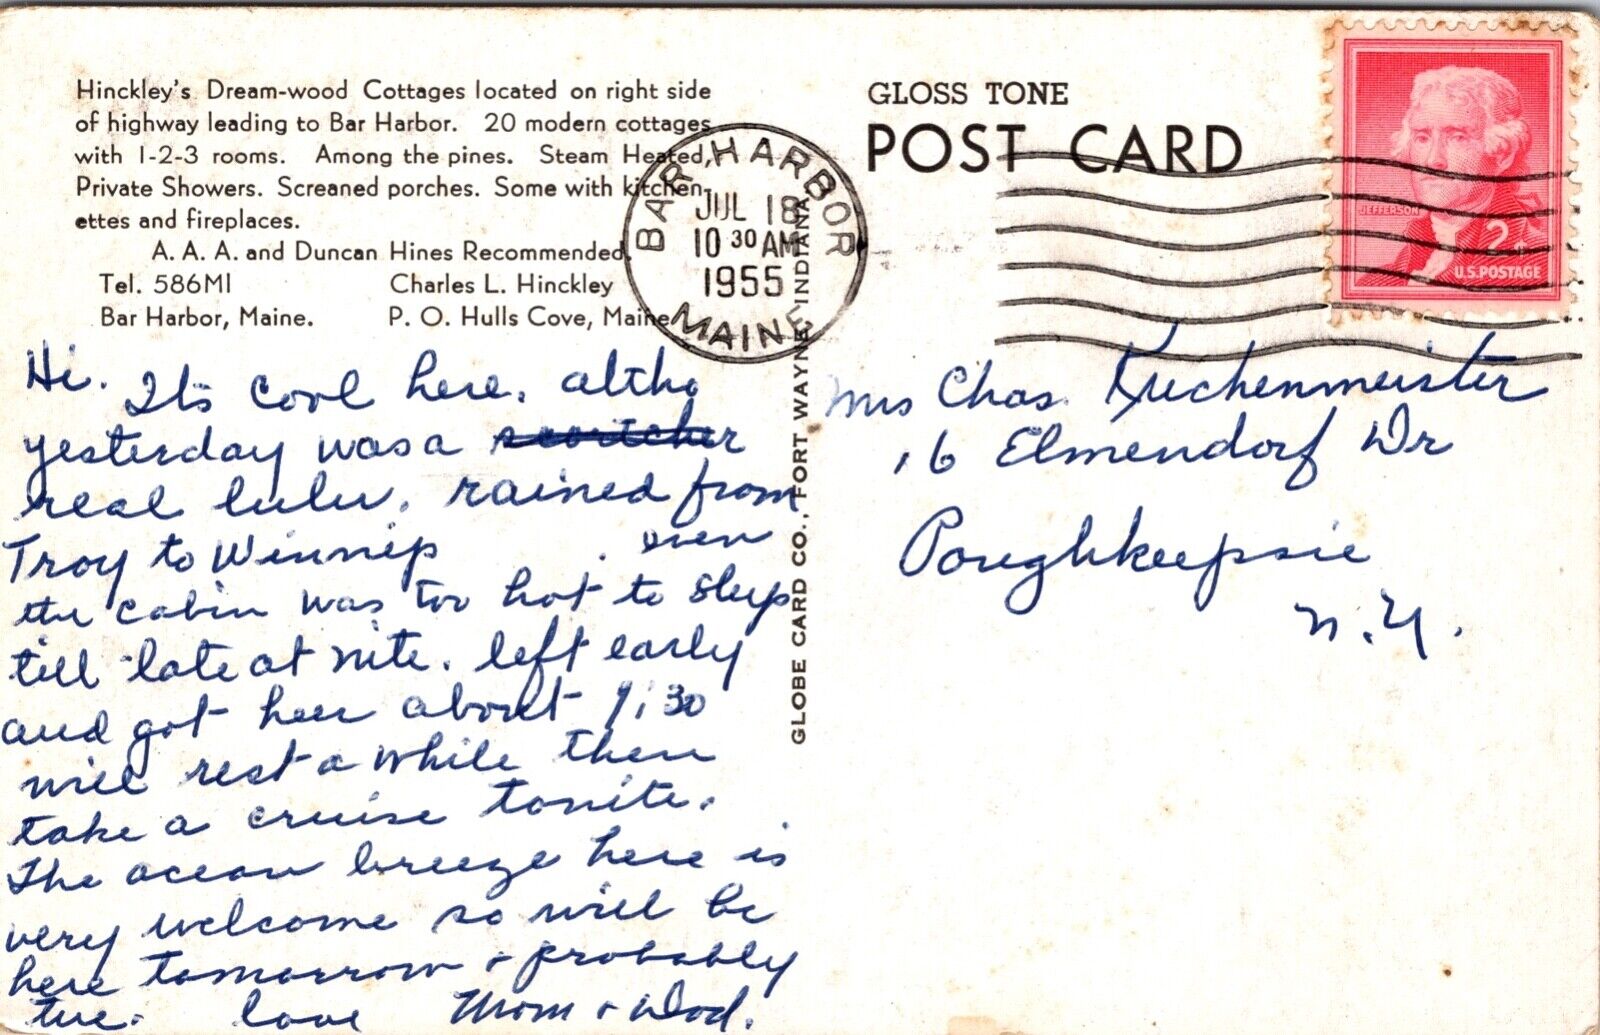 Hinckley's Dream-wood Cottages located on right side
of highway leading to Bar Harbor. 20 modern cottages
with 1-2-3 rooms. Among the pines. Steam Heated,
Private Showers. Screaned porches. Some with kitchen-
ettes and fireplaces.
A. A. A. and Duncan Hines Recommended.
Tel. 586M1 Charles L. Hinckley
Bar Harbor, Maine. P. O. Hulls Cove, Maine
GLOSS TONE
POST CARD
BAR HARBOR
JUL 18
10 30 AM
1955
MAINE
JEFFERSON
2¢
U.S. POSTAGE
GLOBE CARD CO., FORT WAYNE, INDIANA
Hi. Its cool here. altho
yesterday was a scorcher
real lulu. rained from
Troy to Winnip . even
the cabin was too hot to sleep
till late at nite. left early
and got here about 9:30
will rest a while then
take a cruise tonite.
The ocean breeze here is
very welcome so will be
here tomorrow & probably
tue. love Mom &
Mrs Chas. Kuchenmeister
16 Elmendorf Dr
Poughkeepsie
N.Y.